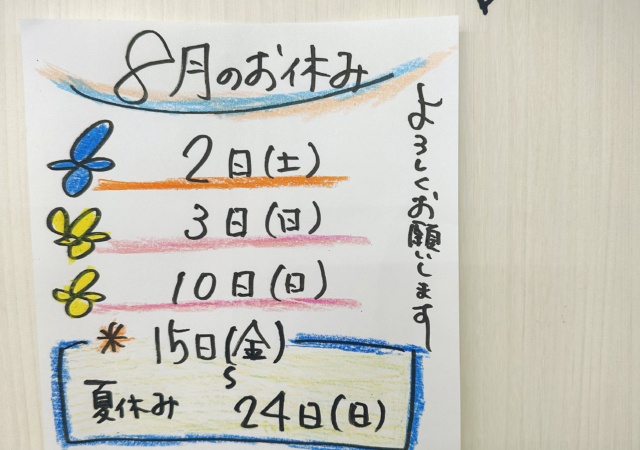 8月のお休み
2日(土)
3日(日)
10日(日)
*15日(金)
〜
夏休み 24日(日)
よろしくお願いします